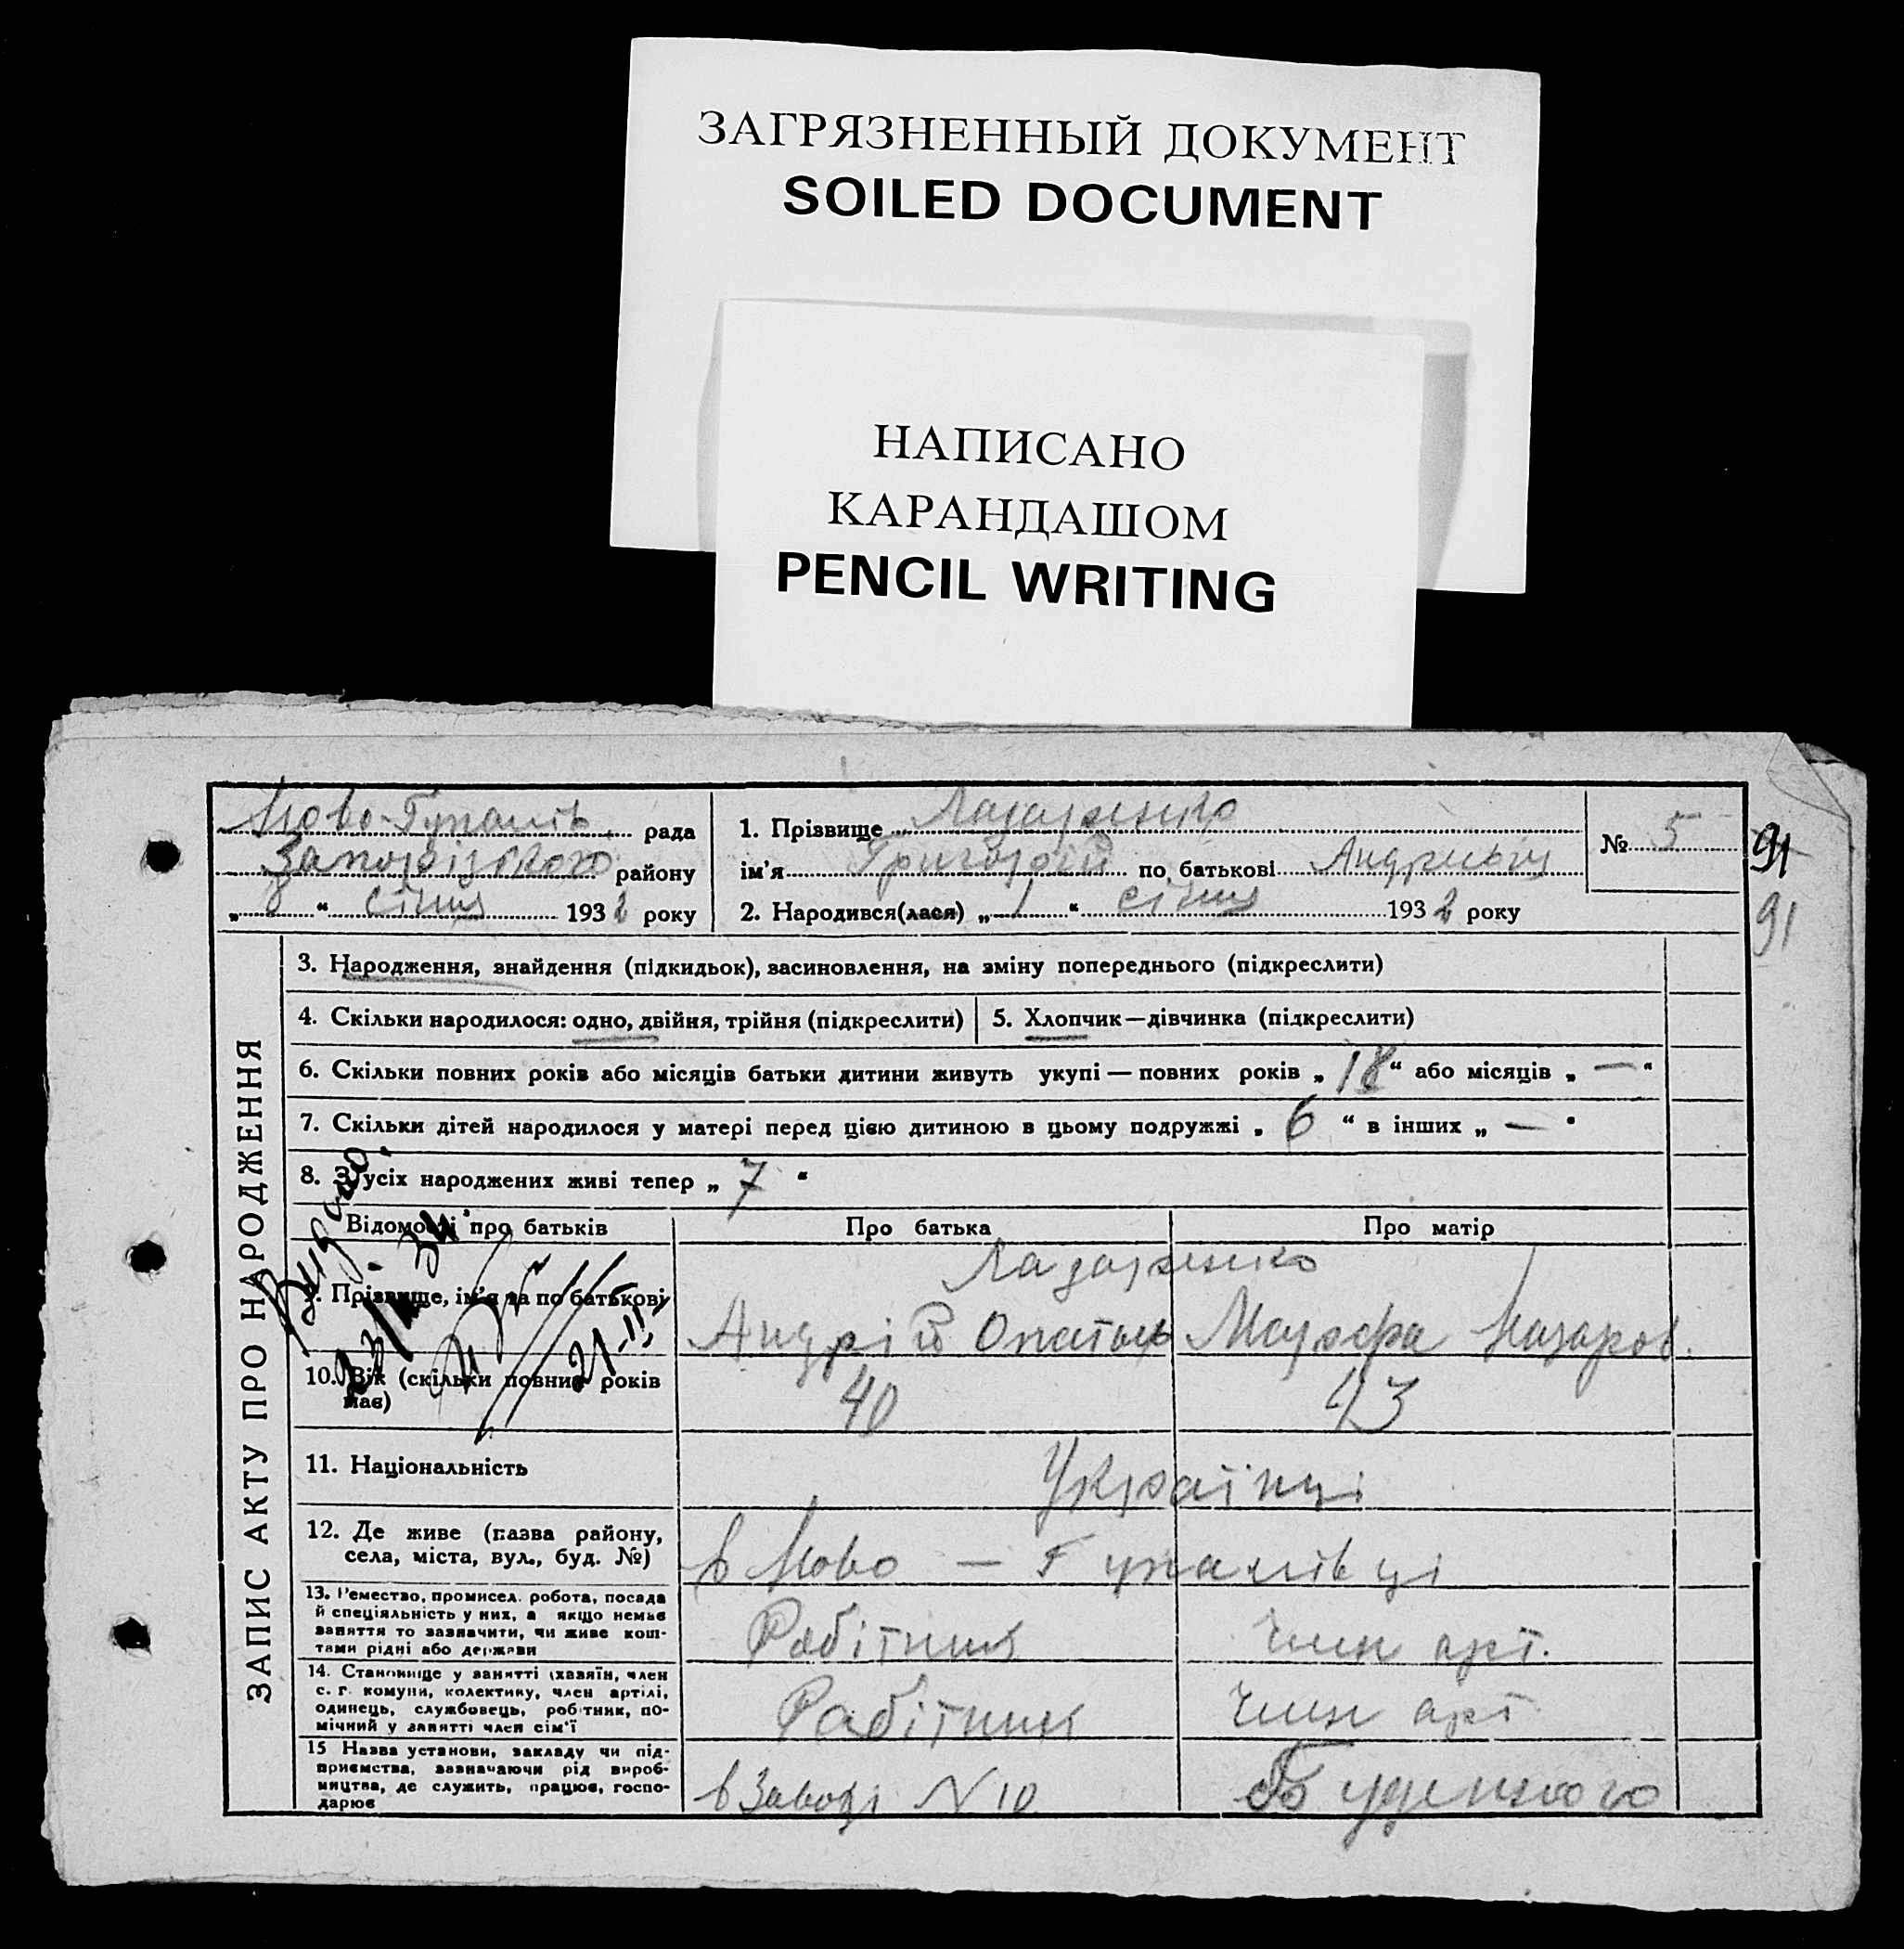 ЗАГРЯЗНЕННЫЙ ДОКУМЕНТ
SOILED DOCUMENT
НАПИСАНО
КАРАНДАШОМ
PENCIL WRITING
Ново-Гупалів. рада
Запорізького району
„8“ січня 1932 року
1. Прізвище Лазаренко
ім'я Григорій по батькові Андрієвич
2. Народився(лася) „1“ січня 1932 року
№ 5
91
91
ЗАПИС АКТУ ПРО НАРОДЖЕННЯ
3. Народження, знайдення (підкидьок), засиновлення, на зміну попереднього (підкреслити)
4. Скільки народилося: одно, двійня, трійня (підкреслити)
5. Хлопчик—дівчинка (підкреслити)
6. Скільки повних років або місяців батьки дитини живуть укупі — повних років „18“ або місяців „—“
7. Скільки дітей народилося у матері перед цією дитиною в цьому подружжі „6“ в інших „—“
8. З усіх народжених живі тепер „7“
Відомості про батьків
Про батька
Про матір
9. Прізвище, ім'я та по батькові
Лазаренко
Андрій
Марфа Назаров.
10. Вік (скільки повних років має)
40
43
11. Національність
Українці
12. Де живе (назва району,
села, міста, вул., буд. №)
в Ново — Гупалівці
13. Ремество, промисел, робота, посада
й спеціяльність у них, а якщо немає
заняття то зазначити, чи живе кош-
тами рідні або держави
Робітник
Член арт.
14. Становище у занятті (хазяїн, член
с. г. комуни, колективу, член артілі,
одинець, службовець, робітник, по-
мічний у занятті член сім'ї
Робітник
Член арт
15 Назва установи, закладу чи під-
приємства, зазначаючи рід вироб-
ництва, де служить, працює, госпо-
дарює
в Заводі N 10
Буденного